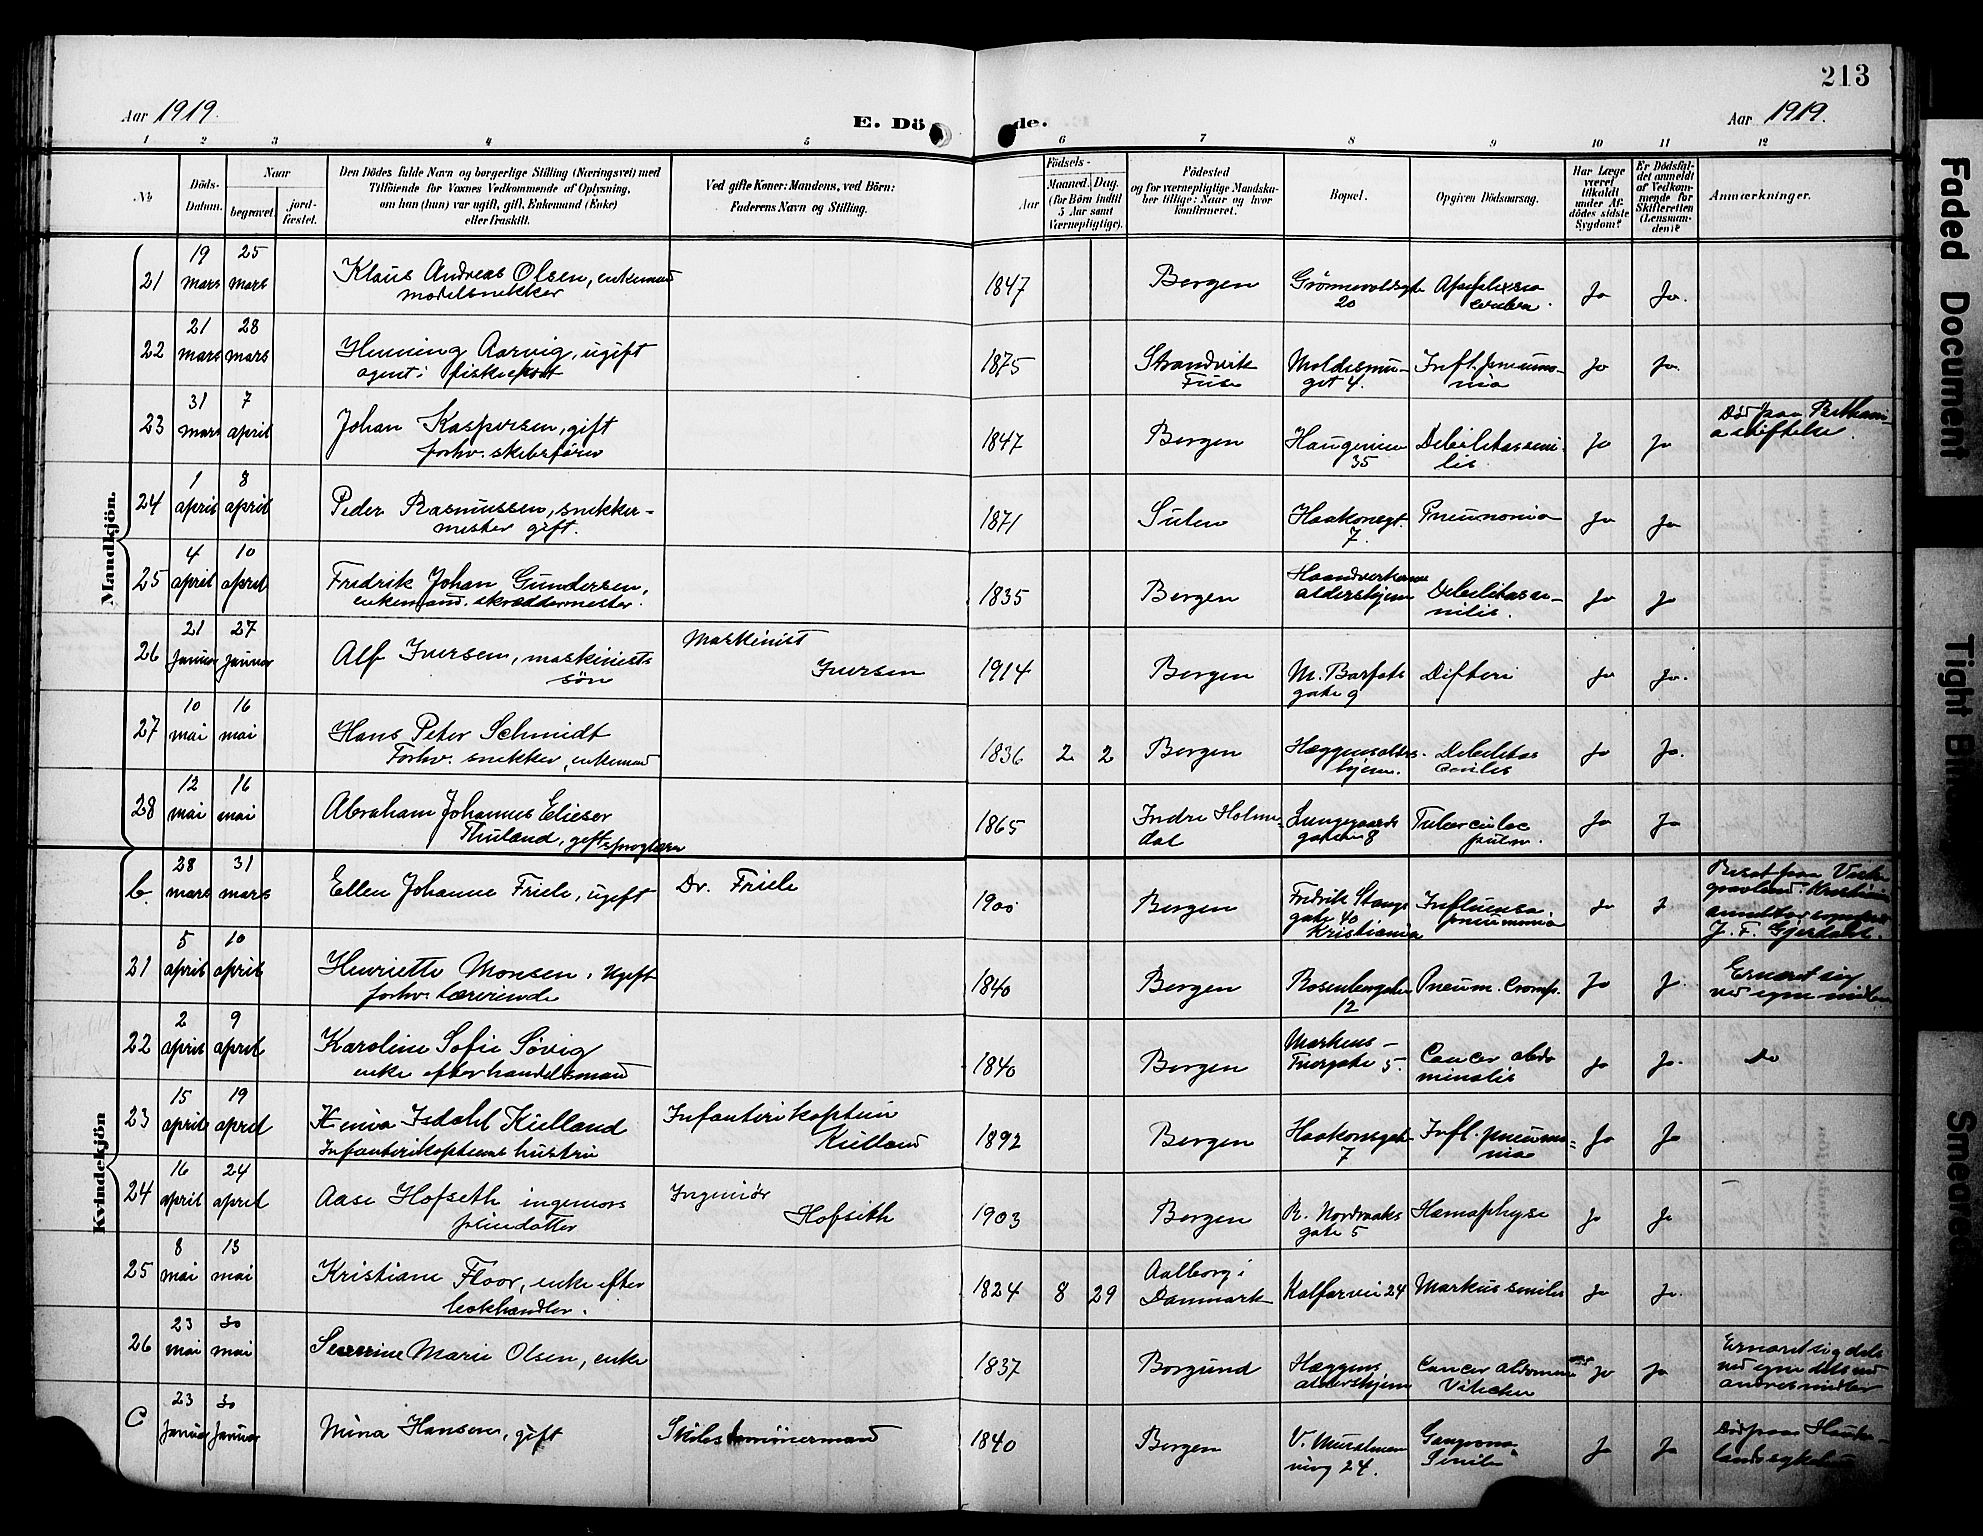 213
Aar 1919.
E. Dö de.
Aar 1919.
1 2 3 4 5 6 7 8 9 10 11 12
No
Döds-Datum.
Naar
begravet.
jord-fæstet.
Den Dödes fulde Navn og borgerlige Stilling (Næringsvei) med
Tilföiende for Voxnes Vedkommende af Oplysning,
om han (hun) var ugift, gift, Enkemand (Enke)
eller fraskilt.
Ved gifte Koner: Mandens, ved Börn:
Faderens Navn og Stilling.
Födsels-
Aar
Maaned. Dag.
(for Börn indtil
5 Aar samt
Værnepligtige).
Födested
og for værnepligtige Mandska-
ber tillige: Naar og hvor
konfirmeret.
Bopæl.
Opgiven Dödsaarsag.
Har Læge
været
tilkaldt
under Af-
dödes sidste
Sygdom?
Er Dödsfal-
det anmeldt
af Vedkom-
mende for
Skifteretten
(Lensman-
den)?
Anmærkninger.
Mandkjön.
21 19 mars 25 mars Klaus Andreas Olsen, enkemand modelsnekker 1847 Bergen 20 Apoplexia Ja Ja.
22 21 mars 28 mars Henning Aarvig, ugift agent i 1875 Strandvik Fuse 4. Infl. pneumo-nia Ja Ja.
23 31 mars 7 april Johan Kaspersen, gift forhv. skibsfører 1847 Bergen Haugeveien 35 Debilitas seni-lis Ja Ja Død paa Bethani-a stiftelse.
24 1 april 8 april Peder Rasmussen, snekker-mester gift. 1871 Sulen Haakonsgt. 7. Pneumonia Ja Ja
25 4 april 10 april Fredrik Johan Gundersen, enkemand. skræddermester. 1835 Bergen Haandverkernes aldershjem Debilitas se-nilis. Ja Ja
26 21 januar 27 januar Alf Iversen, maskinists søn Maskinist Iversen 1914 Bergen M. Barfots gate 9 Difteri Ja Ja.
27 10 mai 16 mai Hans Peter Schmidt Forhv. snekker, enkemand 1836 2 2 Bergen Hæggens alders-hjem. Debilitas senilis Ja Ja.
28 12 mai 16 mai Abraham Johannes Elieser Thuland, gift, sproglærer 1865 Indre Holme-dal Lungegaards gaten 8 Tuberculose pulm. Ja Ja
Kvindekjön
b. 28 mars 31 mars Ellen Johanne Friele, ugift Dr. Friele 1900 Bergen Fredrik Stangs gate 40 Kristiania Influensa pneumonia Ja J Begravet paa gravlund Kristiania J. F. Gjerdahl.
21 5 april 10 april Henriette Monsen, ugift forhv. lærerinde 1840 Bergen Rosenbergsgaten 12 Pneum. Croup. Ja J. Ernæret sig ved egne midler
22 2 april 9 april Karoline Sofie Søvig enke efter handelsmand 1840 Bergen Markens- 5. Cancer abdo minalis Ja Ja. Do
23 15 april 19 april Xenia Isdahl Kielland Infanterikapteins hustru Infanterikaptein Kielland 1892 Bergen Haakonsgt. 7 Infl. pneumo-nia Ja Ja
24 16 april 24 april Aase Hofseth ingeniørs Ingeniør Hofseth 1903 Bergen R. Nordraaks gate 5 Hæmophyse Ja Ja
25 8 mai 13 mai Kristiane Floor, enke efter bokhandler. 1824 8 29 Aalborg i Danmark Kalfarvei 24 Markus senilis Ja Ja.
26 23 mai 30 mai Severine Marie Olsen, enke 1837 Borgund Hæggens aldershjem Cancer abdomen Ja Ja Ernæret sig dels ved egne dels ved andres midler
C 23 Januar 30 Januar Nina Hansen, gift Skibstømmermand 1840 Bergen V. 24. Gangræna Senilis Ja Ja Død paa Hauke-landssykehus
Faded Document
Tight Bin
Smeared